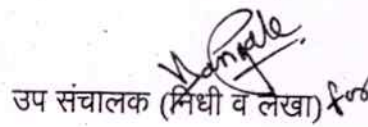 उप संचालक (निधी व लेखा) for